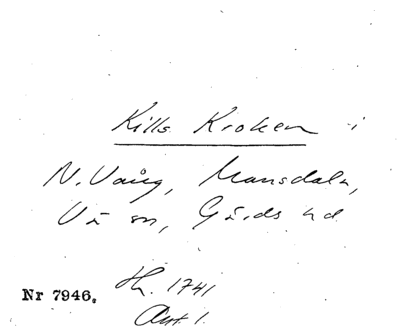 Kills Kroken i
N. Vång, Mansdala,
Vä sn, Gärds hd
Nr 7946. Hh. 1741
Avt. 1.